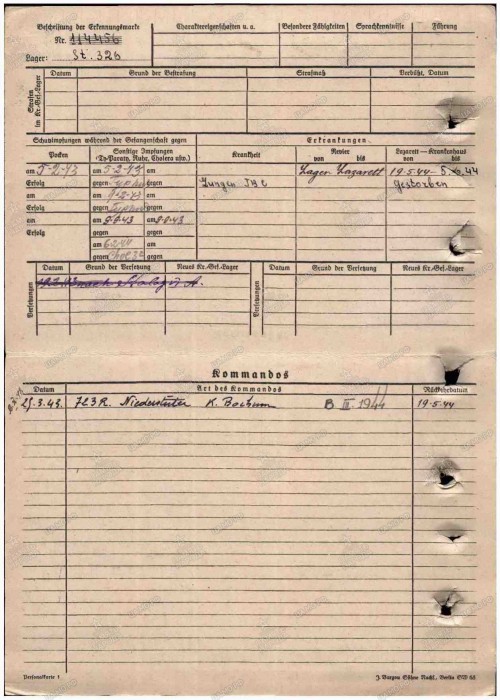 Beschriftung der Erkennungsmarke
Nr. 114456
Lager: St. 326
Charaktereigenschaften u. a.
Besondere Fähigkeiten
Sprachkenntnisse
Führung
Strafen im Kr.-Gef.-Lager
Datum
Grund der Bestrafung
Strafmaß
Verbüßt, Datum
Schutzimpfungen während der Gefangenschaft gegen
Erkrankungen
Pocken
Sonstige Impfungen
(Ty-Paraty, Ruhr, Cholera usw.)
Krankheit
Revier
von bis
Lazarett — Krankenhaus
von bis
am 5-2-43 am 5-2-43 am
Erfolg gegen gegen
Lungen TBC
Lager Lazarett 19-5-44 - 5.6.44
gestorben
am am am
Erfolg gegen gegen
am am 9-9-43 am
Erfolg gegen gegen
am am
gegen gegen
Versetzungen
Datum
Grund der Versetzung
Neues Kr.-Gef.-Lager
Versetzungen
Datum
Grund der Versetzung
Neues Kr.-Gef.-Lager
nach A.
Kommandos
Datum
Art des Kommandos
Rückkehrdatum
25.3.43. 723 R. Niederstüter K. Bochum B III. 1944 19-5-44
Personalkarte I
J. Bargou Söhne Nachf., Berlin SW 68